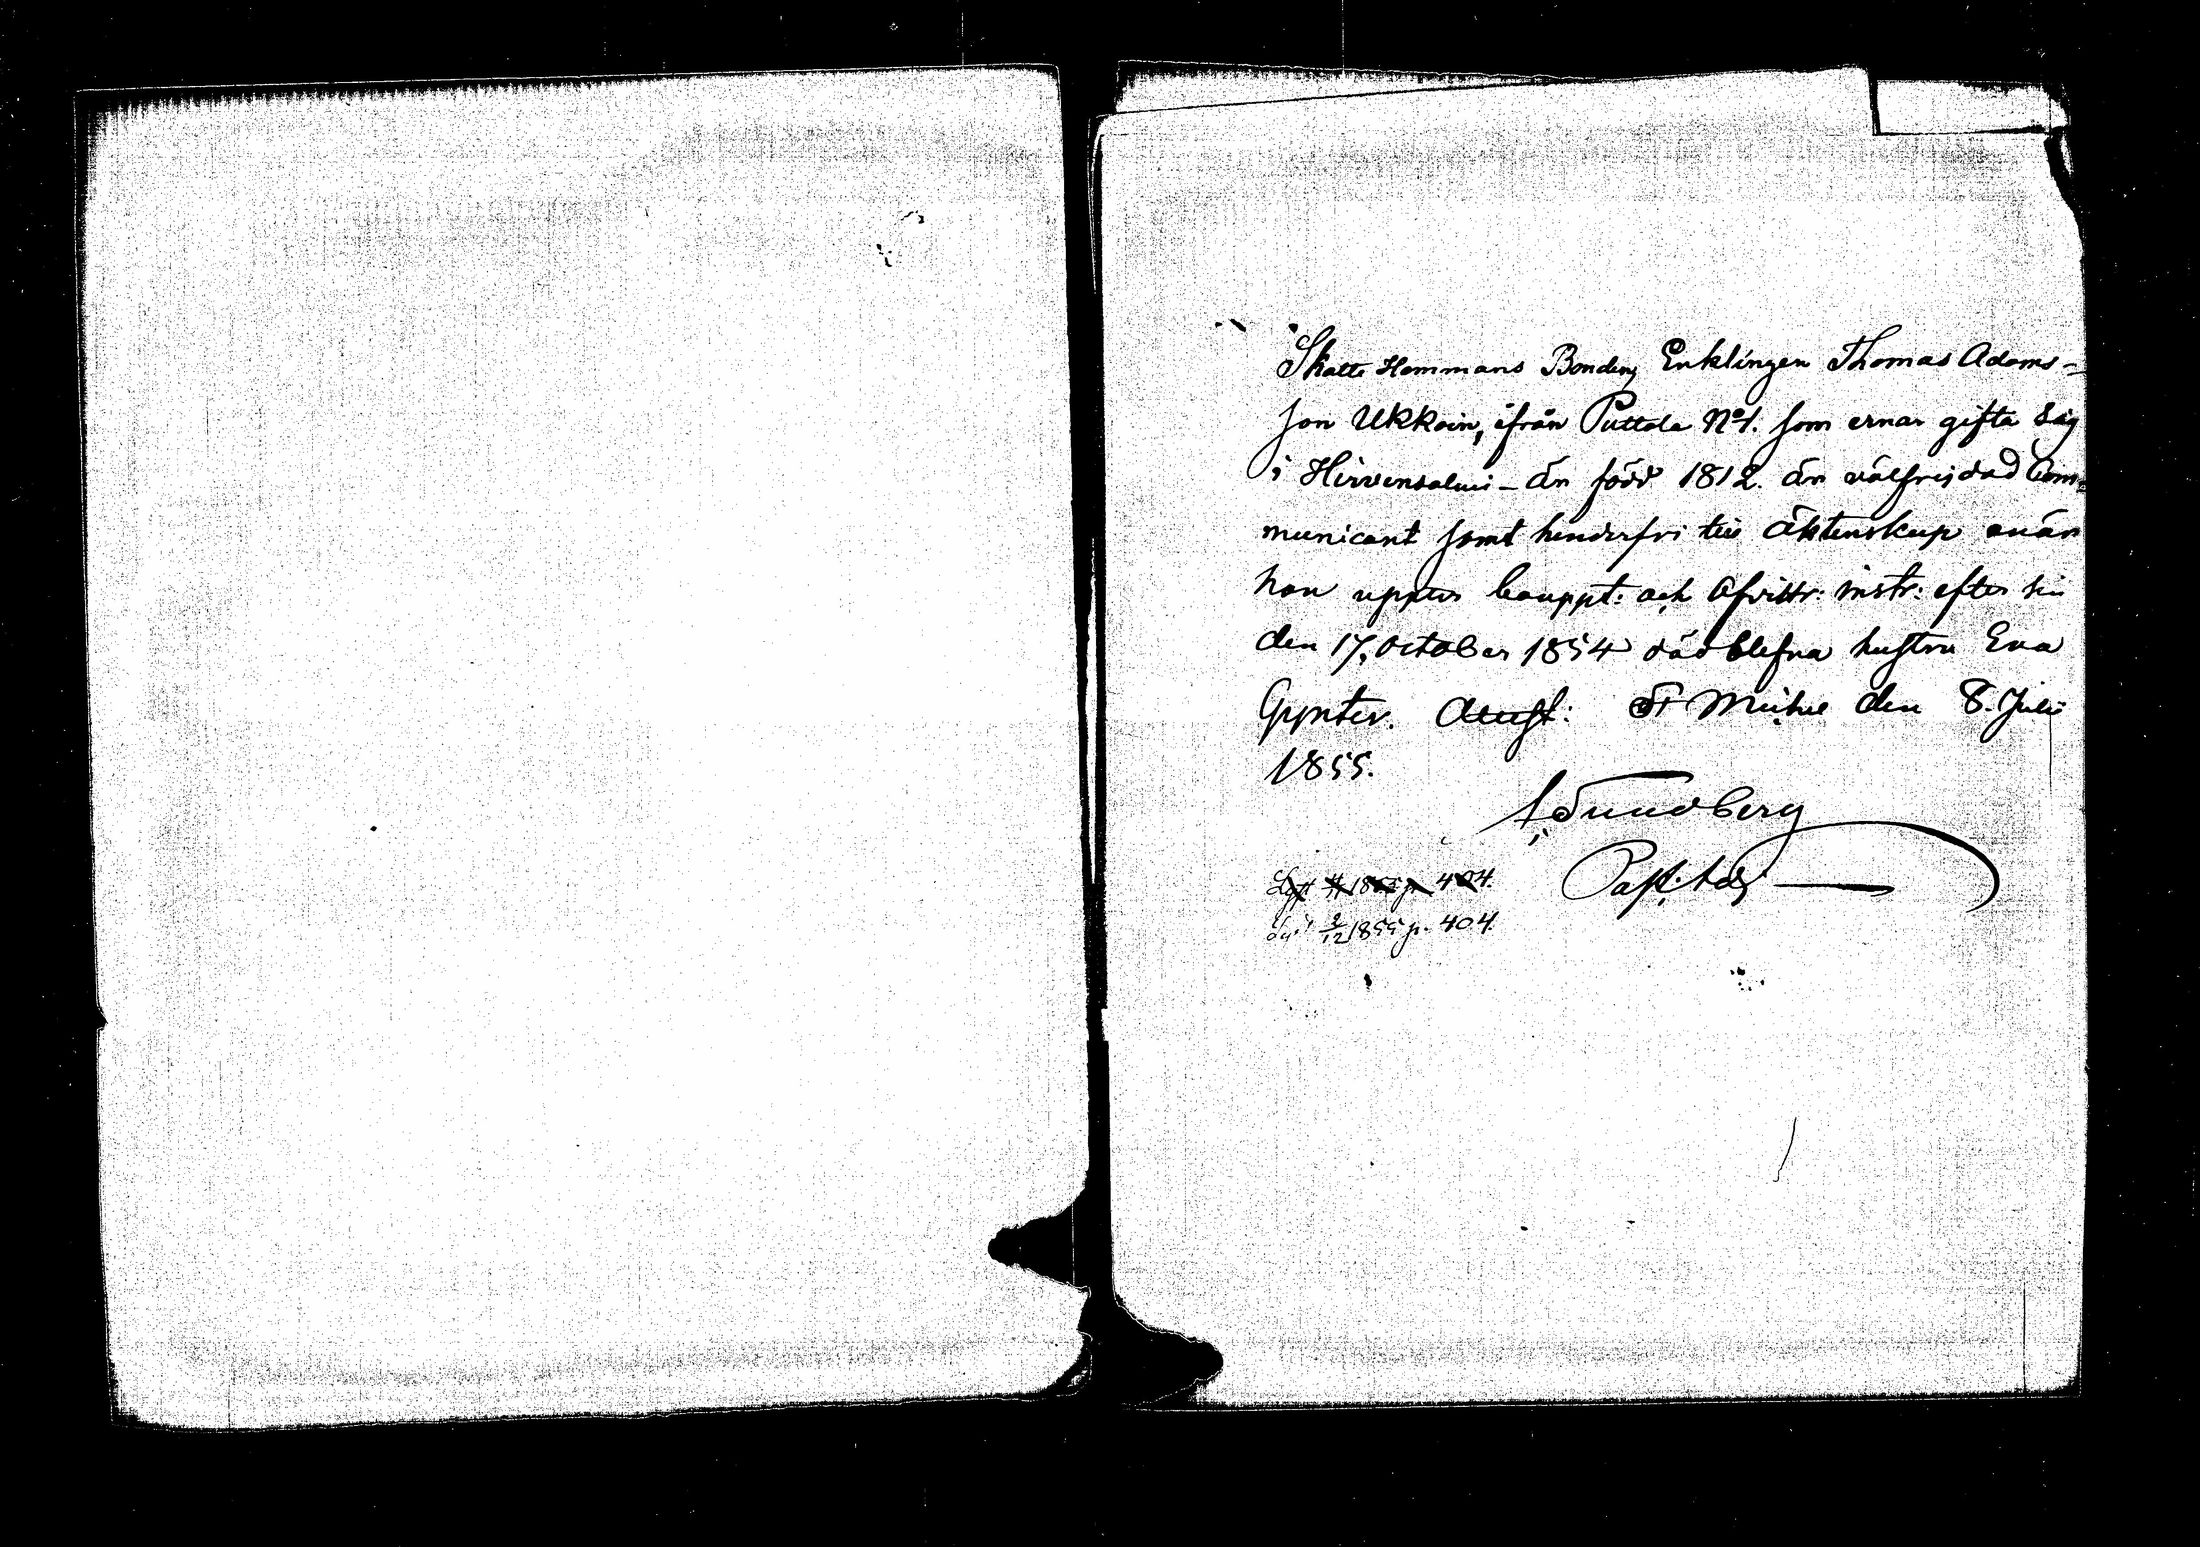 Skatte Hemmans Bonden, Enklingen Thomas Adams-
son Ukkoin, ifrån Puttola No 1. som ernar gifta sig
i Hirvensalmi - är född 1812. är välfrejdad Com-
municant samt hinderfri till äktenskap enär
han uppter bouppt: och Afvittr: instr: efter sin
den 17, October 1854 död blefna hustru Eva
Gynter. St Michel den 8. Juli
1855.
Sundberg
Past. Adj
1855 p. 404.
2/12 1855 p. 404.